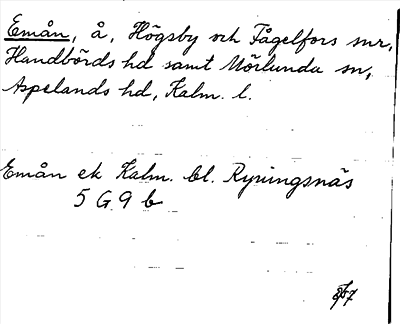 Emån, å, Högsby och Fågelfors snr,
Handbörds hd samt Mörlunda sn,
Aspelands hd, Kalm. l.
Emån ek Kalm. bl. Ryningsnäs
5 G 9 b